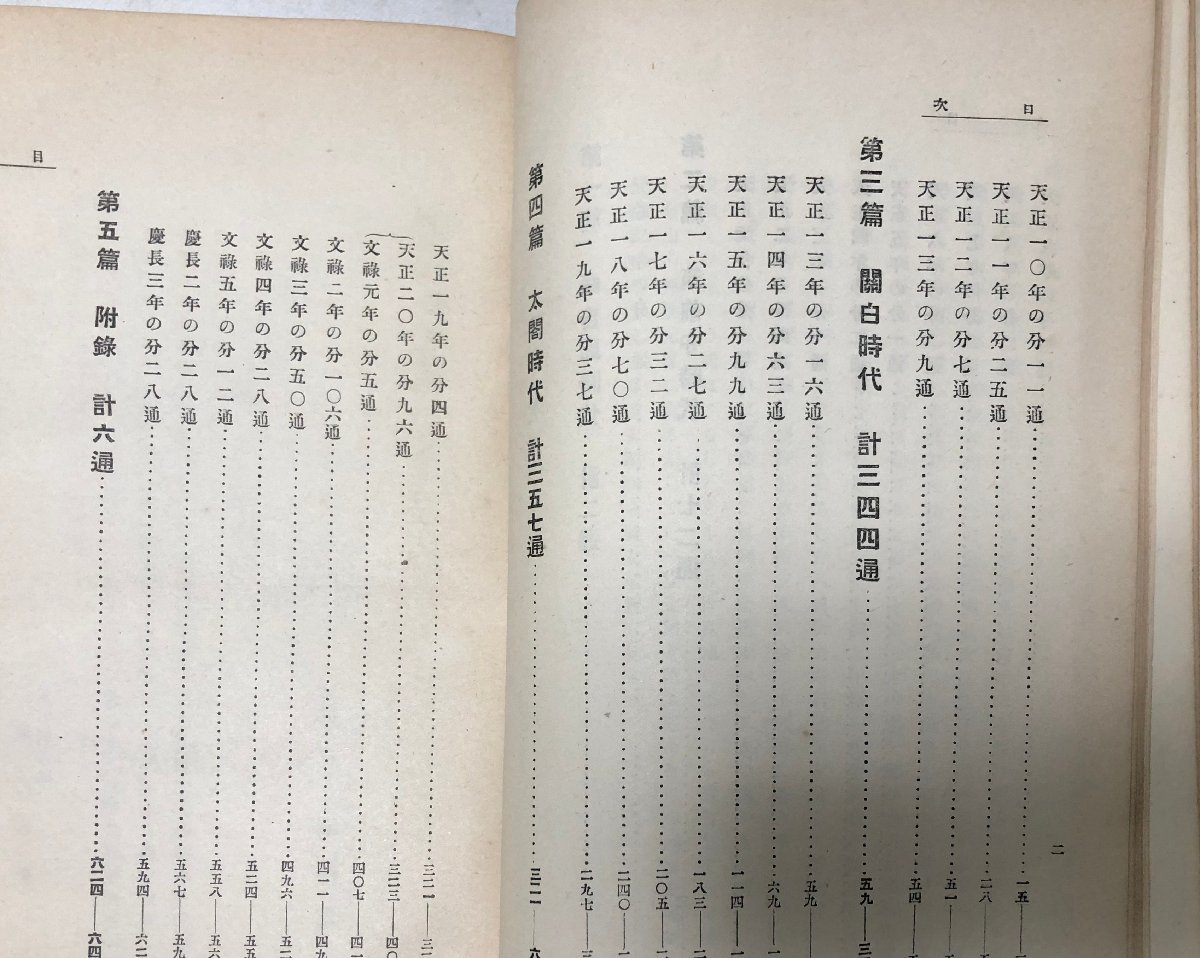 目次
天正一〇年の分一一通……一五
天正一一年の分二五通……二八
天正一二年の分七通……五一
天正一三年の分九通……五四
第三篇　關白時代　計三四四通……五九
天正一三年の分一六通……五九
天正一四年の分六三通……六九
天正一五年の分九九通……一一四
天正一六年の分二七通……一八三
天正一七年の分三二通……二〇五
天正一八年の分七〇通……二四〇
天正一九年の分三七通……二九七
第四篇　太閤時代　計三五七通……三二一
二
目
天正一九年の分四通……三二一
天正二〇年の分九六通……三二三
文祿元年の分五通……四〇七
文祿二年の分一〇六通……四一一
文祿三年の分五〇通……四九六
文祿四年の分二八通……五二四
文祿五年の分一二通……五五八
慶長二年の分二八通……五六七
慶長三年の分二八通……五九四
第五篇　附錄　計六通……六二四——六四